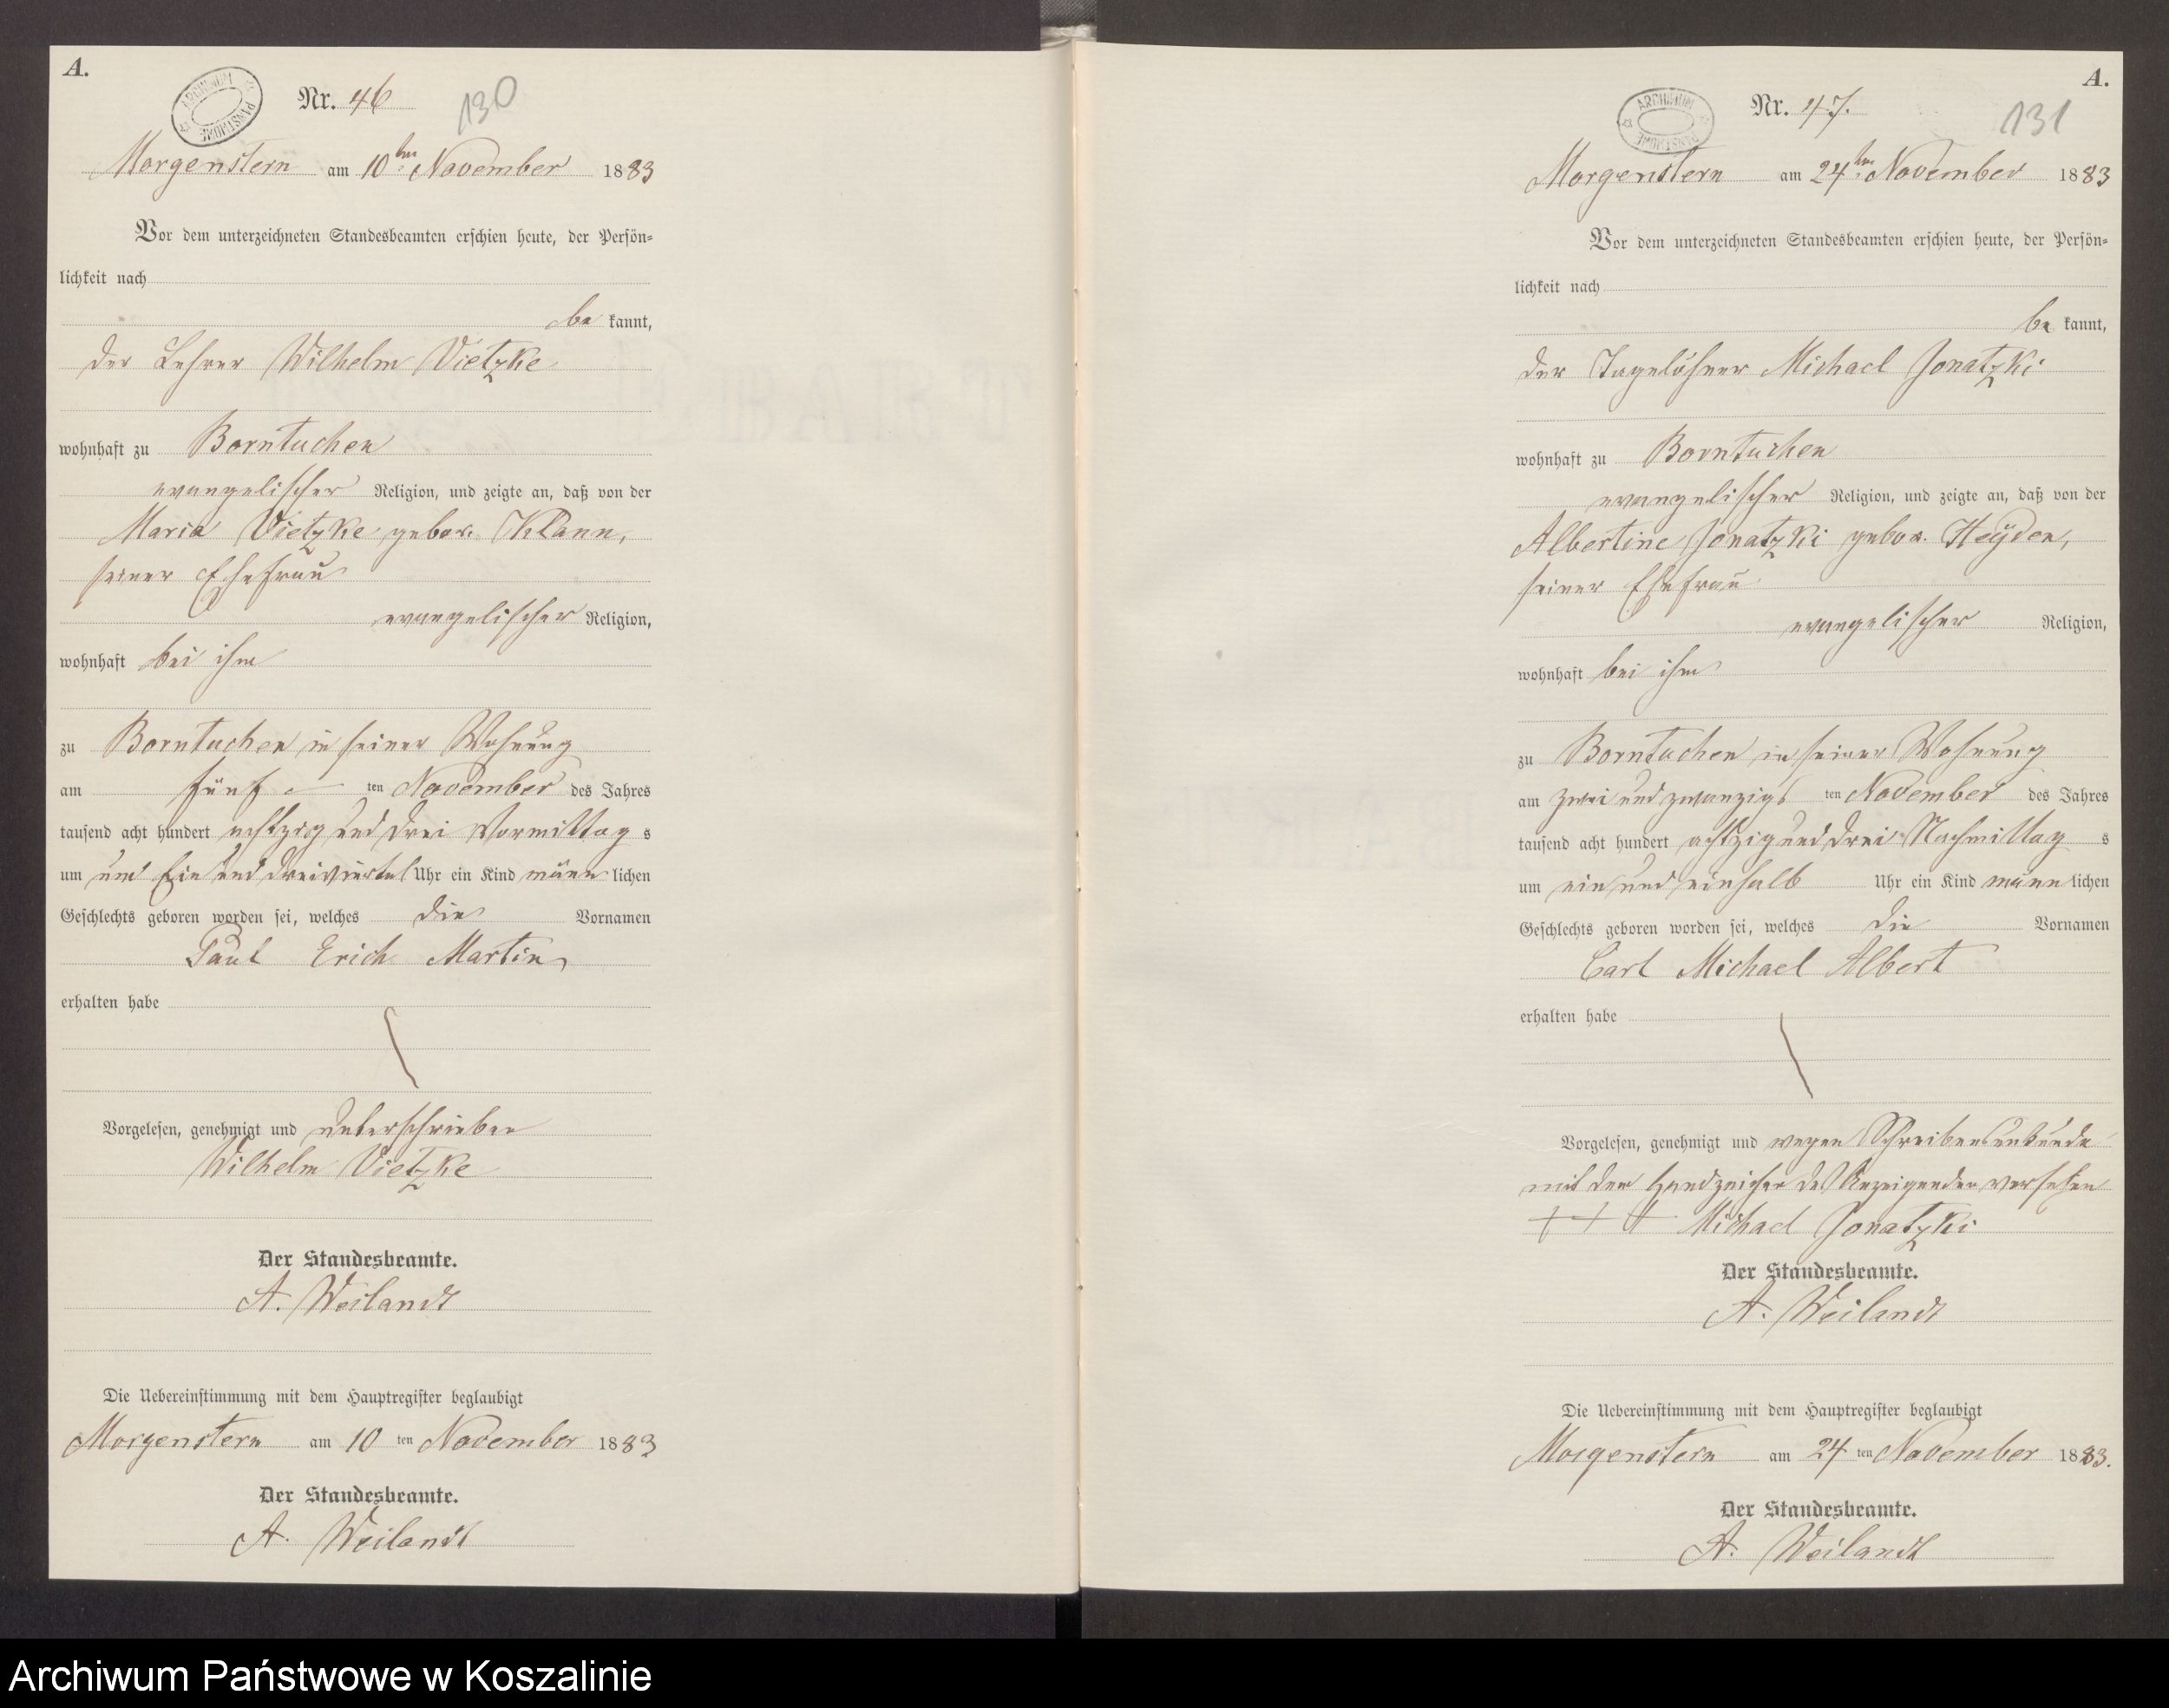 A.
ARCHIWUM PAŃSTWOWE
Nr. 46
130
Morgenstern am 10ten November 1883
Vor dem unterzeichneten Standesbeamten erschien heute, der Persön-
lichkeit nach
be kannt,
der Lehrer Wilhelm Vietzke
wohnhaft zu Borntuchen
evangelischer Religion, und zeigte an, daß von der
Maria Vietzke gebor. Klann,
seiner Ehefrau
evangelischer Religion,
wohnhaft bei ihm
zu Borntuchen in seiner Wohnung
am fünf ten November des Jahres
tausend acht hundert achtzig und drei Vormittag s
um um Ein und dreiviertel Uhr ein Kind männ lichen
Geschlechts geboren worden sei, welches die Vornamen
Paul Erich Martin
erhalten habe
Vorgelesen, genehmigt und unterschrieben
Wilhelm Vietzke
Der Standesbeamte.
A. Weilandt
Die Uebereinstimmung mit dem Hauptregister beglaubigt
Morgenstern am 10 ten November 1883
Der Standesbeamte.
A. Weilandt
A.
ARCHIWUM PAŃSTWOWE
Nr. 47.
131
Morgenstern am 24ten November 1883
Vor dem unterzeichneten Standesbeamten erschien heute, der Persön-
lichkeit nach
be kannt,
der Tagelöhner Michael Jonatzki
wohnhaft zu Borntuchen
evangelischer Religion, und zeigte an, daß von der
Albertine Jonatzki gebor. Heÿden,
seiner Ehefrau
evangelischer Religion,
wohnhaft bei ihm
zu Borntuchen in seiner Wohnung
am zwei und zwanzigs ten November des Jahres
tausend acht hundert achtzig und drei Nachmittag s
um ein und einhalb Uhr ein Kind männ lichen
Geschlechts geboren worden sei, welches die Vornamen
Carl Michael Albert
erhalten habe
Vorgelesen, genehmigt und wegen Schreibensunkunde
mit dem Handzeichen des Anzeigenden versehen
+ + + Michael Jonatzki
Der Standesbeamte.
A. Weilandt
Die Uebereinstimmung mit dem Hauptregister beglaubigt
Morgenstern am 24 ten November 1883.
Der Standesbeamte.
A. Weilandt
Archiwum Państwowe w Koszalinie